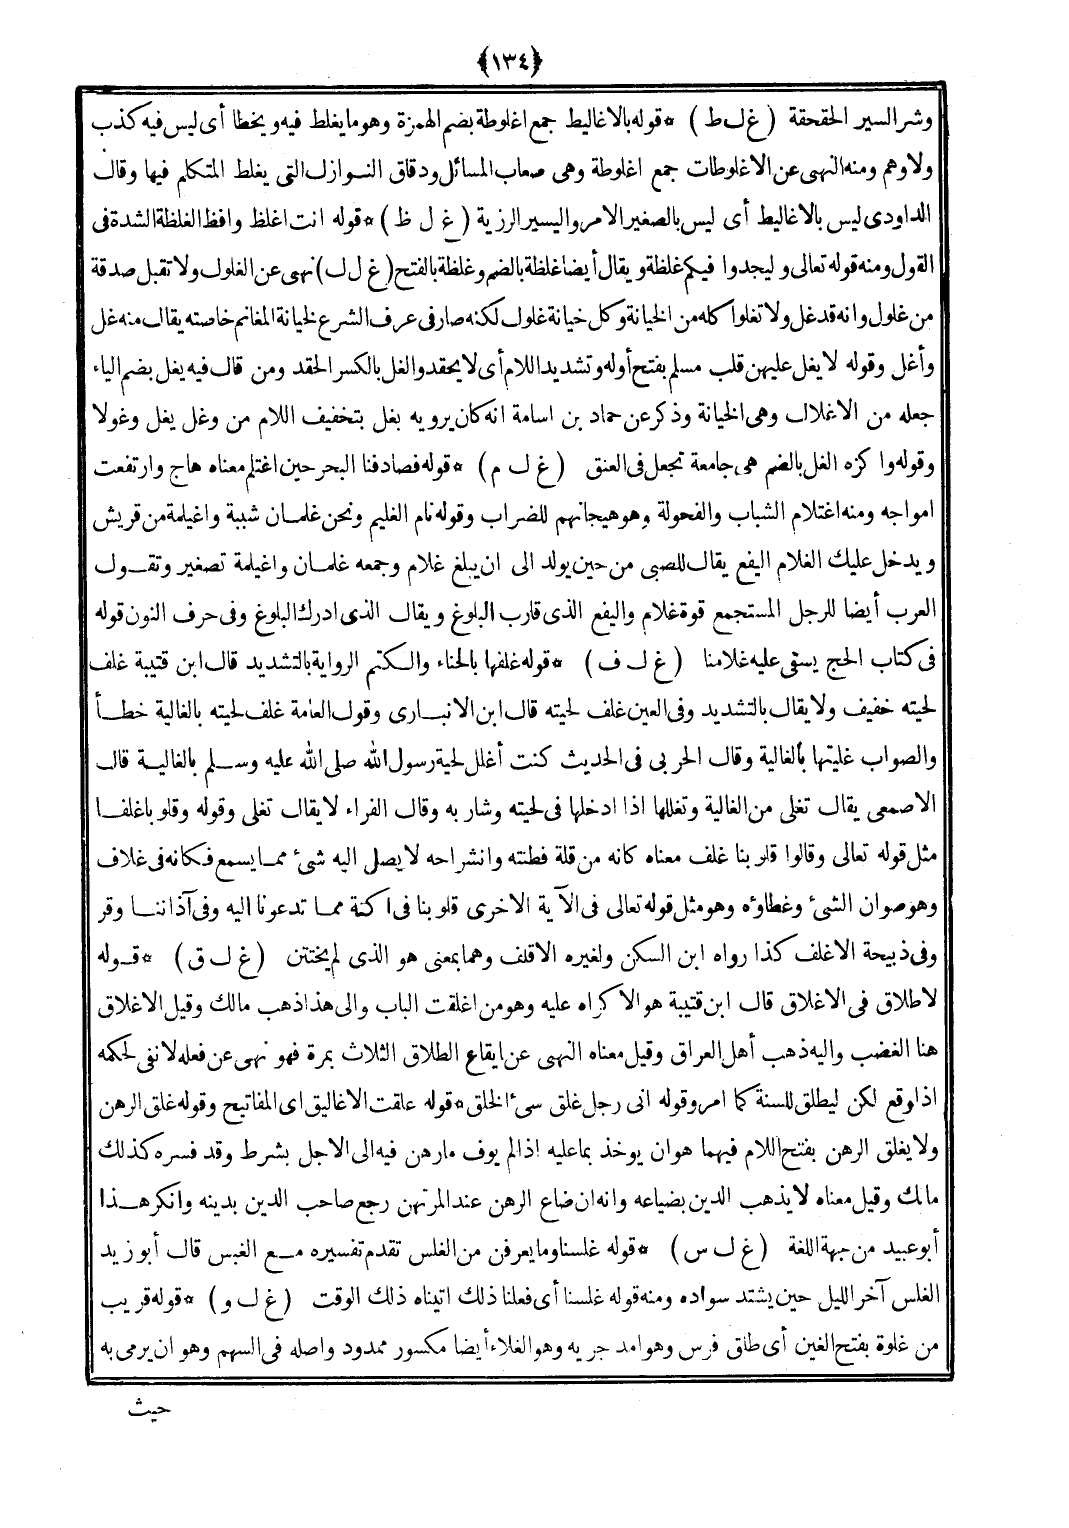 ﴿١٣٤﴾
وشر السير الحقحقة ( غ ل ط ) * قوله بالاغاليط جمع اغلوطة بضم الهمزة وهو ما يغلط فيه ويخطا أى ليس فيه كذب
ولا وهم ومنه النهى عن الاغلوطات جمع اغلوطة وهى صعاب المسائل ودقاق النوازل التى يغلط المتكلم فيها وقال
الداودى ليس بالاغاليط أى ليس بالصغير الامر واليسير الرزية ( غ ل ظ ) * قوله انت اغلظ وافظ الغلظة الشدة فى
القول ومنه قوله تعالى وليجدوا فيكم غلظة ويقال أيضا غلظة بالضم وغلظة بالفتح ( غ ل ل ) نهى عن الغلول ولا تقبل صدقة
من غلول وانه قد غل ولا تغلوا كله من الخيانة وكل خيانة غلول لكنه صار فى عرف الشرع لخيانة المغانم خاصته يقال منه غل
وأغل وقوله لا يغل عليهن قلب مسلم بفتح أوله وتشديد اللام أى لا يحقد والغل بالكسر الحقد ومن قال فيه يغل بضم الياء
جعله من الاغلال وهى الخيانة وذكر عن حماد بن اسامة انه كان يرويه بغل بتخفيف اللام من وغل يغل وغولا
وقوله وا كره الغل بالضم هى جامعة تجعل فى العنق ( غ ل م ) * قوله فصادفنا البحر حين اغتلم معناه هاج وارتفعت
امواجه ومنه اغتلام الشباب والفحولة وهو هيجانهم للضراب وقوله نام الغليم ونحن غلمان شببة واغيلمة من قريش
ويدخل عليك الغلام اليفع يقال للصبى من حين يولد الى ان يبلغ غلام وجمعه غلمان واغيلمة تصغير وتقول
العرب أيضا للرجل المستجمع قوة غلام واليفع الذى قارب البلوغ ويقال الذى ادرك البلوغ وفى حرف النون قوله
فى كتاب الحج يستى عليه غلامنا ( غ ل ف ) * قوله غلفها بالحناء والكتم الرواية بالتشديد قال ابن قتيبة غلف
لحيته خفيف ولا يقال بالتشديد وفى العين غلف لحيته قال ابن الانبارى وقول العامة غلف لحيته بالغالية خطأ
والصواب غليتها بالغالية وقال الحربى فى الحديث كنت أغلل لحية رسول الله صلى الله عليه وسلم بالغالية قال
الاصمعى يقال تغلى من الغالية وتغللها اذا ادخلها فى لحيته وشاربه وقال الفراء لا يقال تغلى وقوله وقلوبا غلفا
مثل قوله تعالى وقالوا قلوبنا غلف معناه كانه من قلة فطنته وانشراحه لا يصل اليه شىء مما يسمع فكانه فى غلاف
وهو صوان الشىء وغطاؤه وهو مثل قوله تعالى فى الآية الاخرى قلوبنا فى اكنة مما تدعونا اليه وفى آذاننا وقر
وفى ذبيحة الاغلف كذا رواه ابن السكن ولغيره الاقلف وهما بمعنى هو الذى لم يختتن ( غ ل ق ) * قوله
لا طلاق فى الاغلاق قال ابن قتيبة هو الاكراه عليه وهو من اغلقت الباب والى هذا ذهب مالك وقيل الاغلاق
هنا الغضب واليه ذهب أهل العراق وقيل معناه النهى عن ايقاع الطلاق الثلاث بمرة فهو نهى عن فعله لا نفى لحكمه
اذا وقع لكن ليطلق للسنة كما امر وقوله انى رجل غلق سىء الخلق * قوله علقت الاغاليق اى المفاتيح وقوله غلق الرهن
ولا يغلق الرهن بفتح اللام فيهما هو ان يوخذ بما عليه اذا لم يوف مارهن فيه الى الاجل بشرط وقد فسره كذلك
مالك وقيل معناه لا يذهب الدين بضياعه وانه ان ضاع الرهن عند المرتهن رجع صاحب الدين بدينه وانكر هذا
أبو عبيد من جهة اللغة ( غ ل س ) * قوله غلسنا وما يعرفن من الغلس تقدم تفسيره مع الغبس قال أبو زيد
الغلس آخر الليل حين يشتد سواده ومنه قوله غلسنا أى فعلنا ذلك اتيناه ذلك الوقت ( غ ل و ) * قوله قريب
من غلوة بفتح الغين أى طلق فرس وهو امد جريه وهو الغلاء أيضا مكسور ممدود واصله فى السهم وهو ان يرمى به
حيث